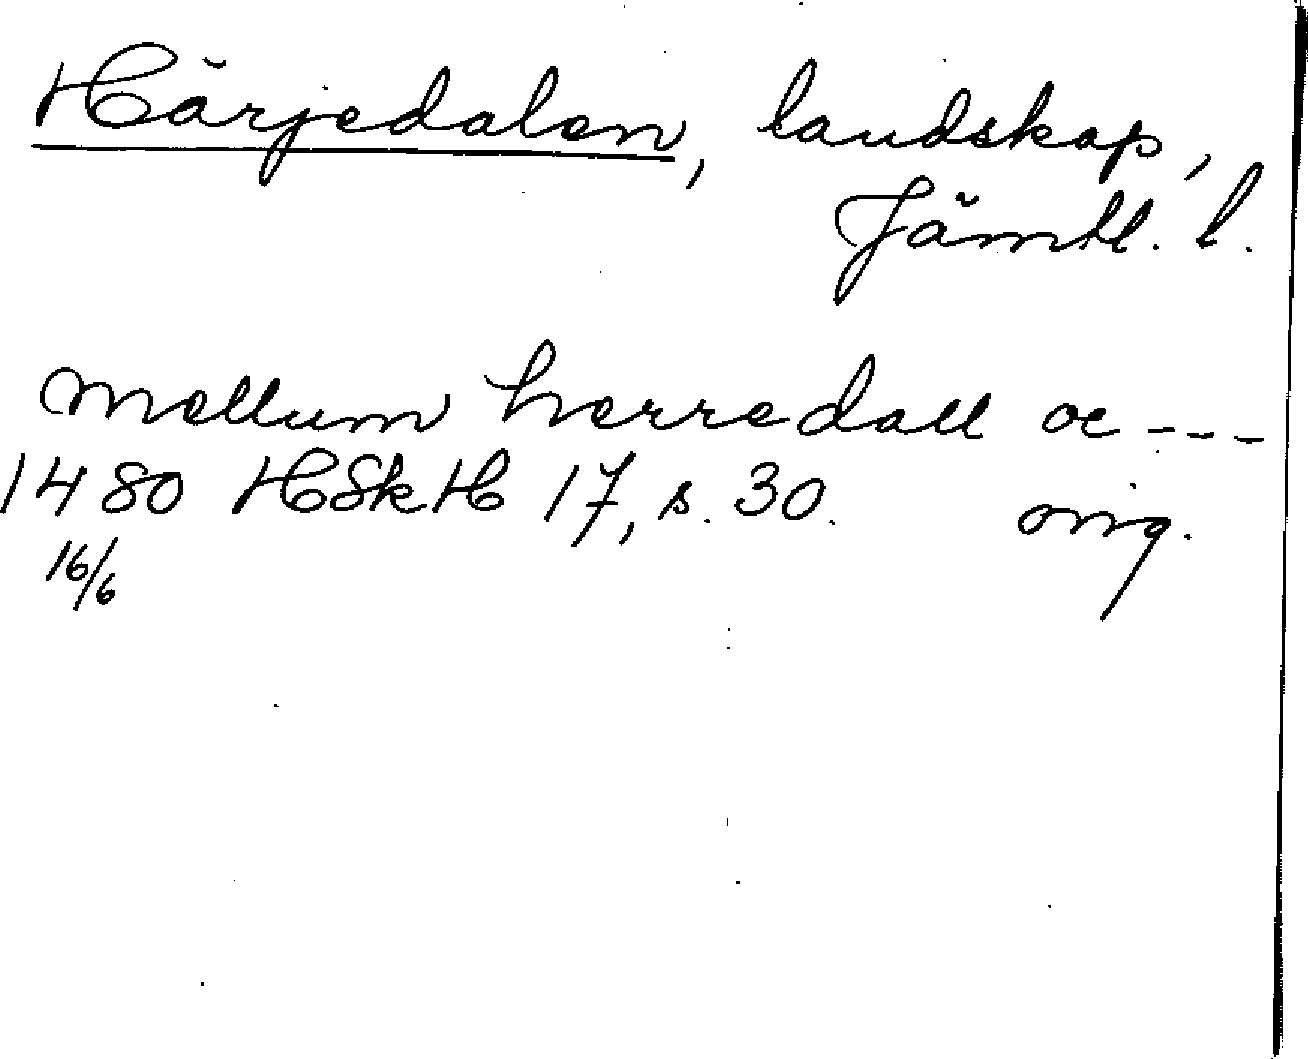 Härjedalen, landskap,
Jämtl. l.
mellum herredall oc ---
1480 HSkH 17, s. 30. orig.
16/6